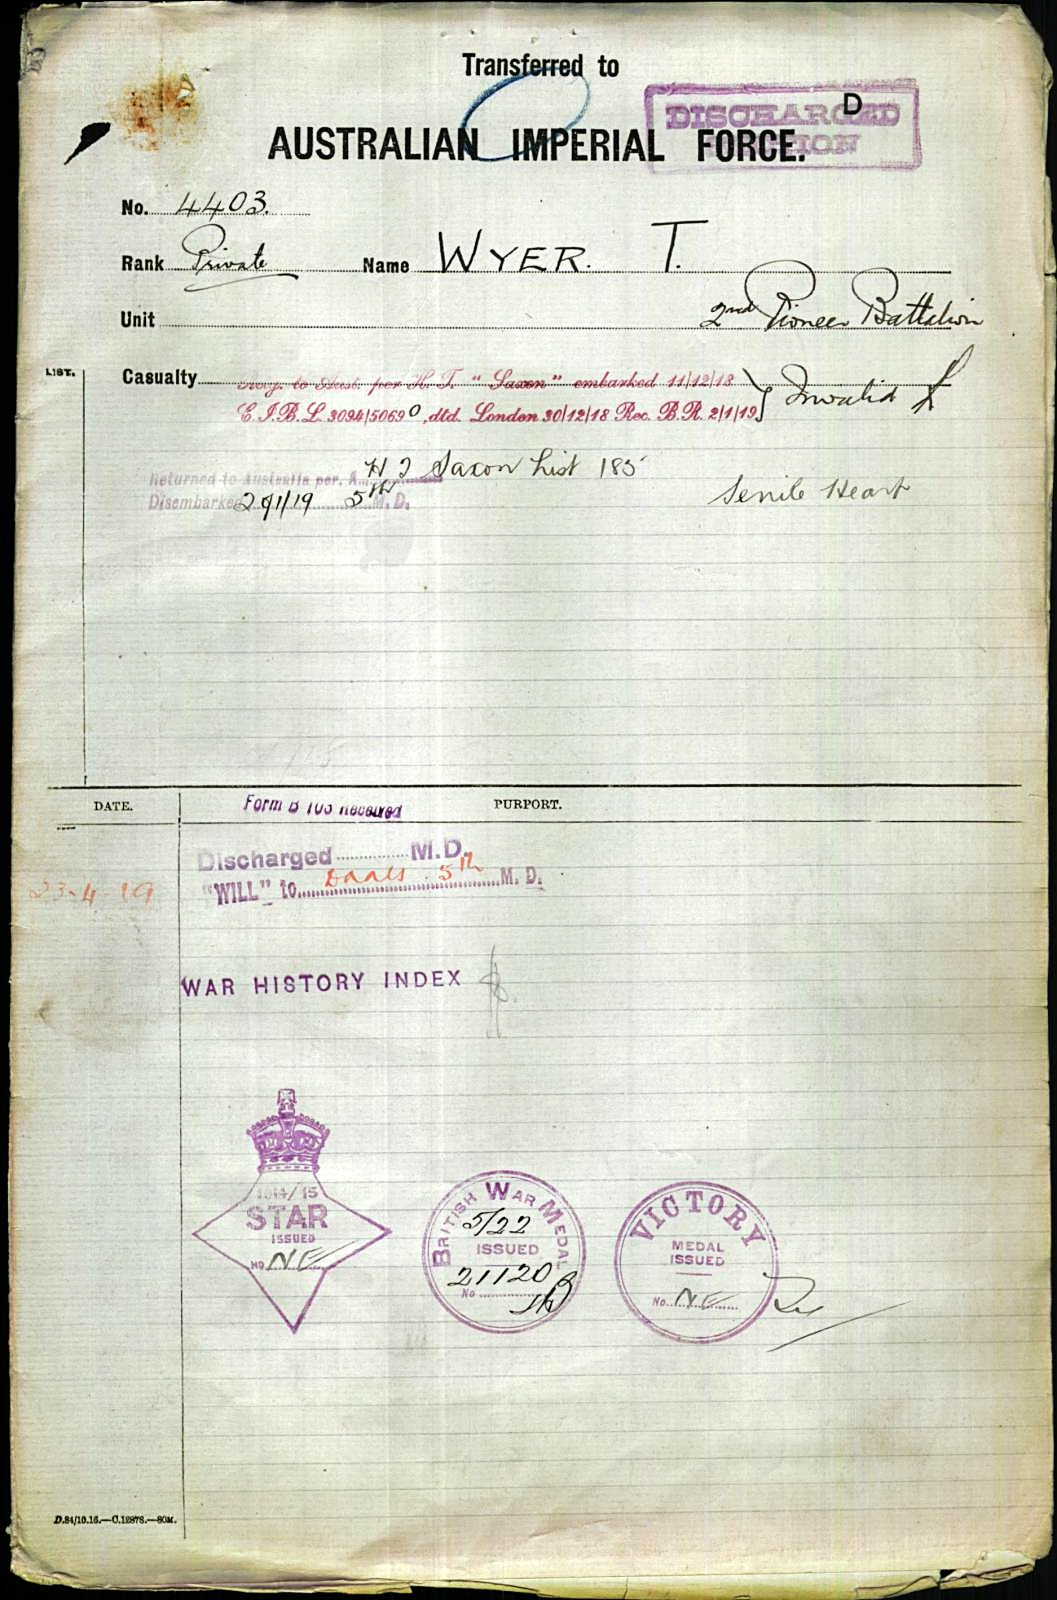 Transferred to
DISCHARGED
D
AUSTRALIAN IMPERIAL FORCE.
No. 4403.
Rank Private Name WYER. T.
Unit 2nd Pioneer Battalion
LIST.
Casualty to Aust. per H. T. "Saxon" embarked 11/12/18
E.I.B.L. 3094/5069 0, dtd. London 30/12/18 Rec. B.R. 2/1/19 Invalid
Returned to Australia per. H T Saxon List 185
Disembarked 29/1/19 5th M.D.
Senile Heart
DATE. PURPORT.
Form B 103 Received
Discharged M.D.
23-4-19 "WILL" to 5th M. D.
WAR HISTORY INDEX
1914/15
STAR
ISSUED
No NE
BRITISH WAR MEDAL
5/22
ISSUED
21120
No
VICTORY
MEDAL
ISSUED
No. NE
D.84/10.16.—C.12878.—80M.